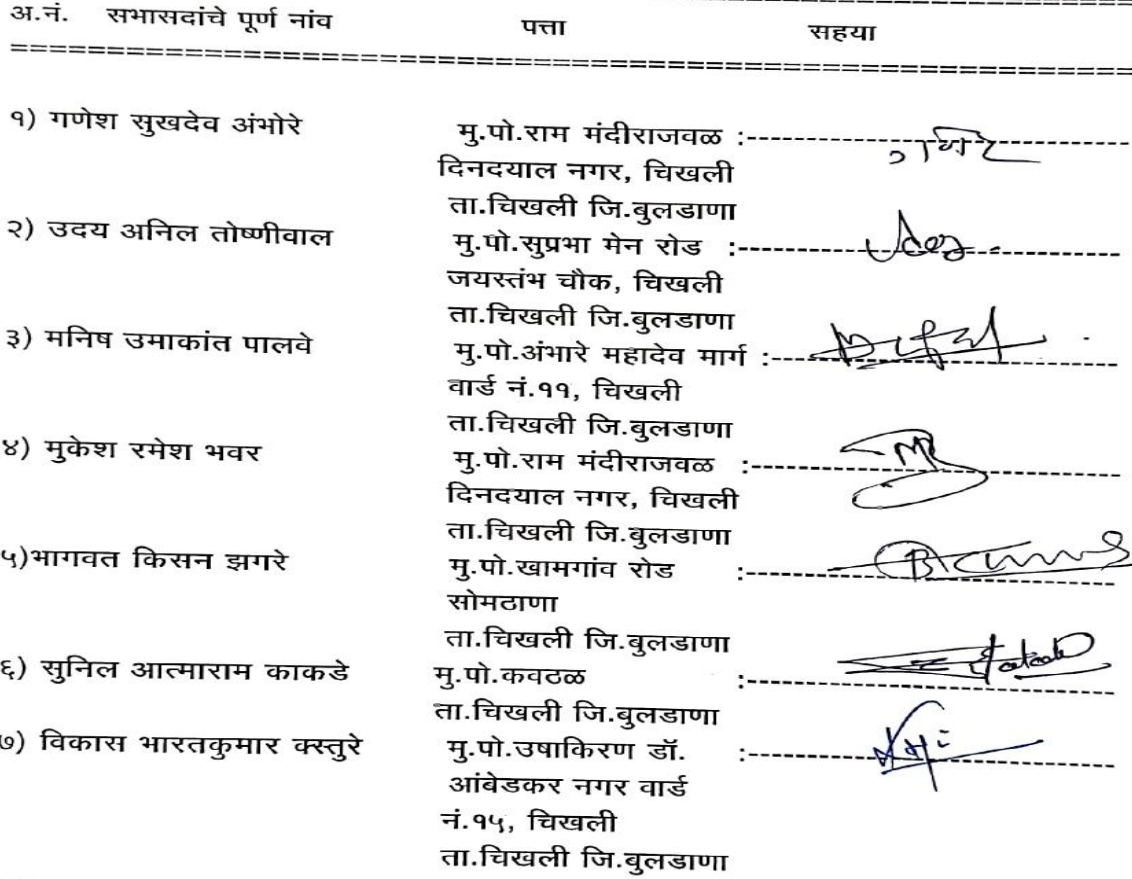 अ.नं. सभासदांचे पूर्ण नांव पत्ता सहया
१) गणेश सुखदेव अंभोरे मु.पो.राम मंदीराजवळ :
दिनदयाल नगर, चिखली
ता.चिखली जि.बुलडाणा
२) उदय अनिल तोष्णीवाल मु.पो.सुप्रभा मेन रोड :
जयस्तंभ चौक, चिखली
ता.चिखली जि.बुलडाणा
३) मनिष उमाकांत पालवे मु.पो.अंभारे महादेव मार्ग :
वार्ड नं.११, चिखली
ता.चिखली जि.बुलडाणा
४) मुकेश रमेश भवर मु.पो.राम मंदीराजवळ :
दिनदयाल नगर, चिखली
ता.चिखली जि.बुलडाणा
५)भागवत किसन झगरे मु.पो.खामगांव रोड :
सोमठाणा
ता.चिखली जि.बुलडाणा
६) सुनिल आत्माराम काकडे मु.पो.कवठळ :
ता.चिखली जि.बुलडाणा
७) विकास भारतकुमार क्स्तुरे मु.पो.उषाकिरण डॉ. :
आंबेडकर नगर वार्ड
नं.१५, चिखली
ता.चिखली जि.बुलडाणा